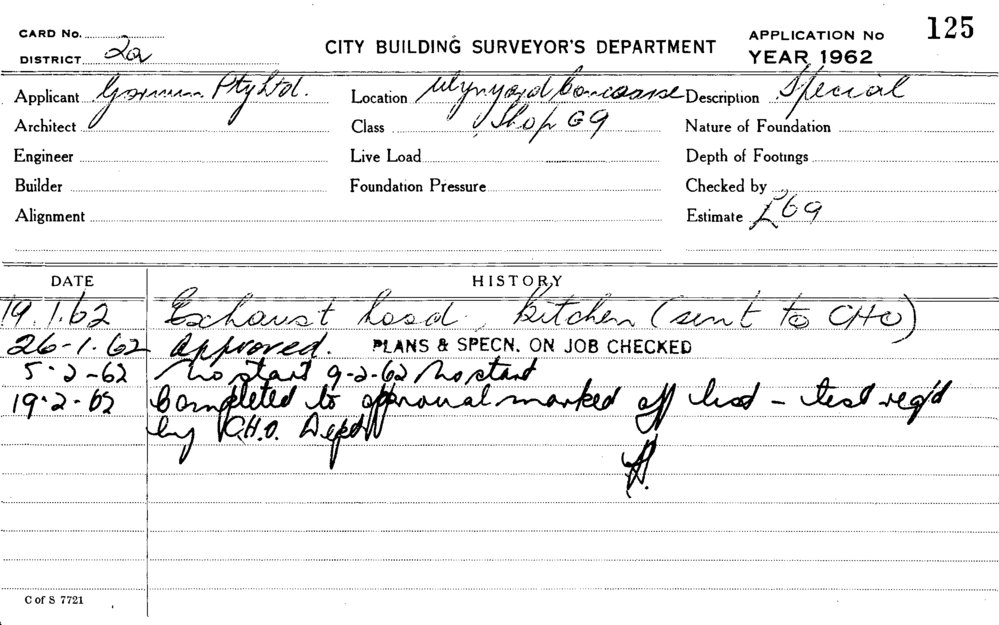 CARD No.
CITY BUILDING SURVEYOR'S DEPARTMENT
APPLICATION No 125
DISTRICT 2a
YEAR 1962
Applicant Pty Ltd. Location Wynyard Concourse Description Special
Architect Class Shop G9 Nature of Foundation
Engineer Live Load Depth of Footings
Builder Foundation Pressure Checked by
Alignment Estimate £69
DATE HISTORY
19.1.62 Exhaust hood, kitchen (sent to CHO)
26-1.62 Approved. PLANS & SPECN. ON JOB CHECKED
5-2-62 No start 9-2-62 No start
19-2-62 Completed to approval marked off list - test req'd
by C.H.O. Dept
C of S 7721